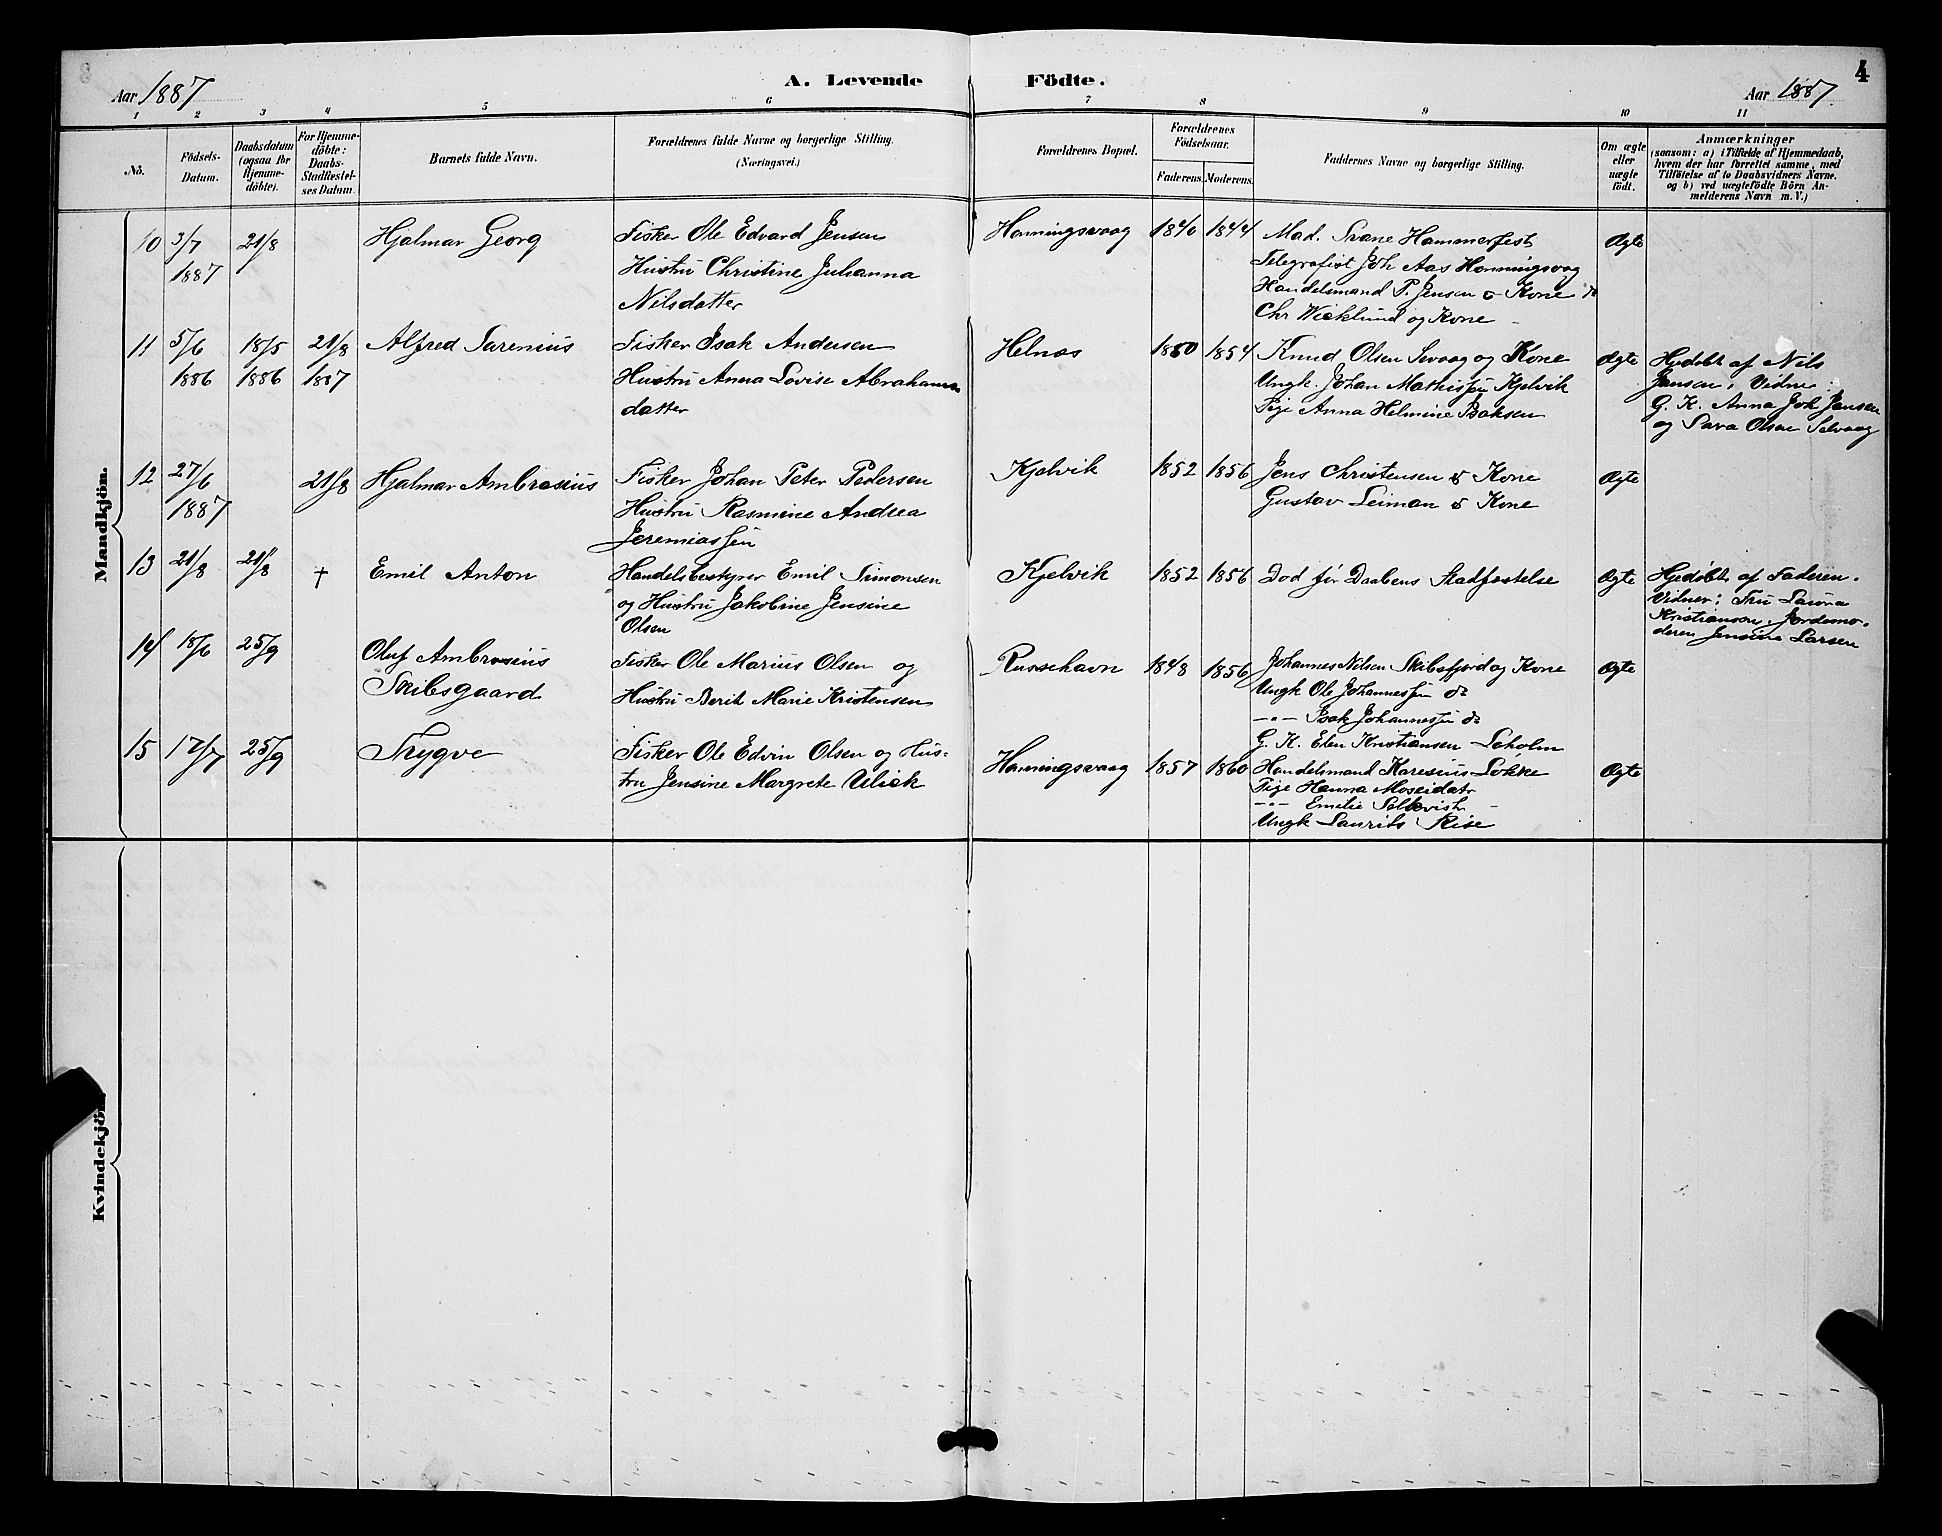 Aar 1887
A. Levende Födte.
Aar 1887.
4
1 2 3 4 5 6 7 8 9 10 11
No.
Födsels-Datum.
Daabsdatum (ogsaa for Hjemmedöbte).
For Hjemmedöbte: Daabs-Stadfæstelses Datum.
Barnets fulde Navn.
Forældrenes fulde Navne og borgerlige Stilling.
(Næringsvei.)
Forældrenes Bopæl.
Forældrenes Födselsaar.
Faderens. Moderens.
Faddernes Navne og borgerlige Stilling.
Om ægte eller uægte födt.
Anmærkninger
(saasom: a) i Tilfælde af Hjemmedaab,
hvem der har forrettet samme, med
Tilföielse af to Daabsvidners Navne.
og b) ved uægtefödte Börn An-
melderens Navn m. V.)
Mandkjön.
10 3/7 1887 21/8 Hjalmar Georg
Fisker Ole Edvard Jensen
Hustru Christine Juhanna
Nilsdatter
Honningsvaag 1840 1844
Mad. Svane Hammerfest
Telegrafist Joh Aas Honningsvaag
Handelsmand P. Jensen & Kone
Chr Wicklund og Kone
Ægte
11 5/6 1886 18/5 1886 21/8 1887 Alfred Sarenius
Fisker Isak Andersen
Hustru Anna Lovise Abrahams
datter
Helnæs 1850 1854
Knud Olsen Sevaag og Kone
Ungk. Johan Mathissen Kjelvik
Pige Anna Helmine Isaksen
Ægte
Hjedöbt af Nils
Jansen, Vidne:
G. K. Anna Joh Jensen
og Sara Olsen Selvaag
12 27/6 1887 21/8 Hjalmar Ambrosius
Fisker Johan Peter Pedersen
Hustru Rasmine Andrea
Jeremiassen
Kjelvik 1852 1856
Jens Christensen & Kone
Gustav Leiman & Kone
Ægte
13 21/8 21/8 † Emil Anton
Handelsbestyrer Emil Simonsen
og Hustru Jakobine Jensine
Olsen
Kjelvik 1852 1856
Död för Daabens Stadfæstelse
Ægte
Hjedöbt af Faderen.
Vidner: Fru Laura
Kristianson, Jordemo-
deren Jensine Larsen
14 18/6 25/9 Oluf Ambrosius
Skibsgaard
Fisker Ole Marius Olsen og
Hustru Berit Marie Kristensen
Russehavn 1848 1856
Johannes Nilsen Skibsfjord og Kone
Ungk Ole Johannessen do
-"- Isak Johannessen do
G. K. Elen Kristiansen Leholm
Ægte
15 12/7 25/9 Trygve
Fisker Ole Edvin Olsen og Hus-
tru Jensine Margrete Ulick
Honningsvaag 1857 1860
Handelsmand Karesius Lokke
Pige Hanna
-"- Emilie
Ungk Laurits Rise
Ægte
Kvindekjön